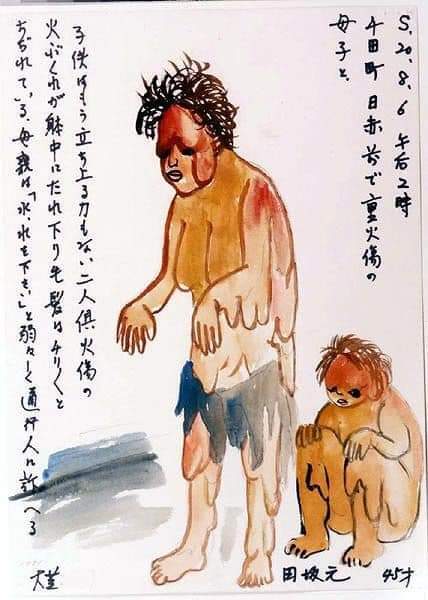 S.20.8.6 午后2時
千田町 日赤前で重火傷の
母子と、
子供はもう立ち上る力もない二人倶火傷の
火ぶくれが躰中にたれ下り毛髪はチリ〱と
ちぢれている、母親は「水、水を下さい」と弱々しく通行人に訴へる
田坂元 45才